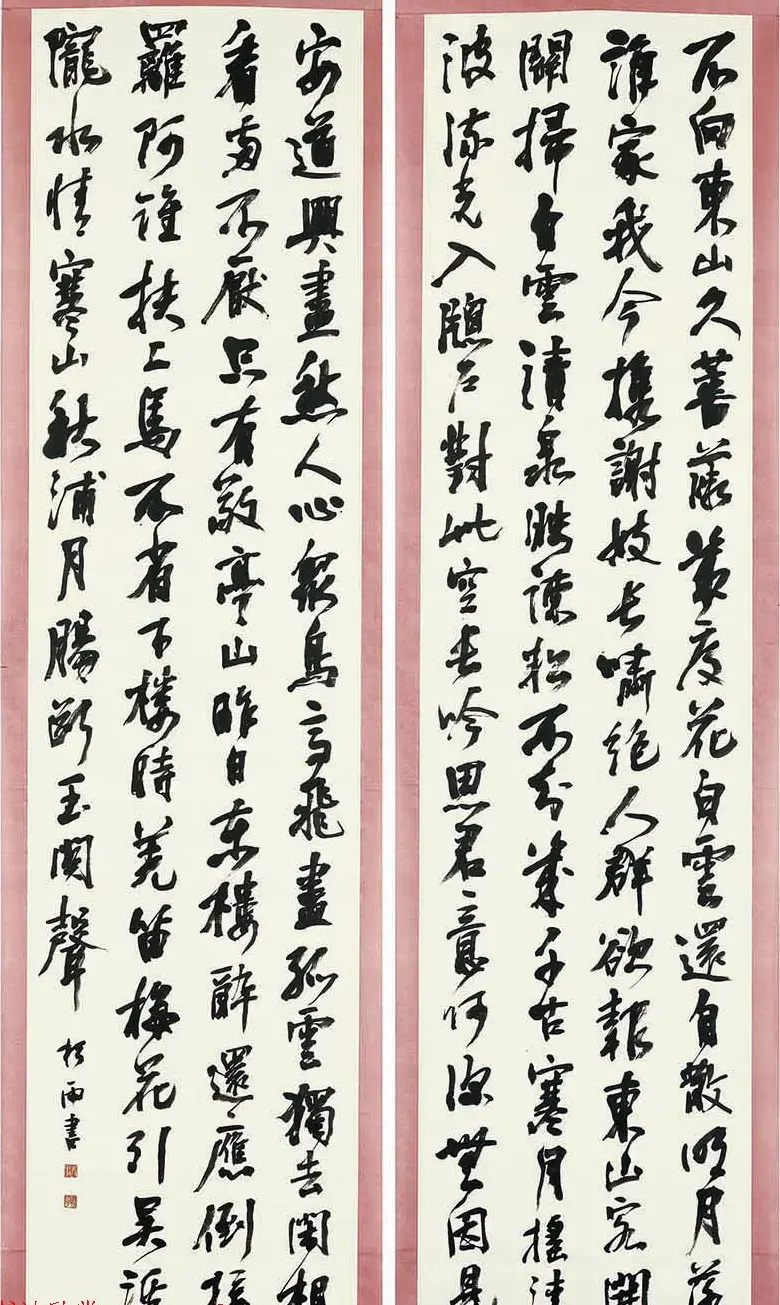 不向東山久薔薇幾度花白雲還自散明月落
誰家我今攜謝妓長嘯絕人群欲報東山客開
關掃白雲清泉映疎松不知幾千古寒月搖清
波流光入牕戶對此空長吟思君意何深無因見
安道興盡愁人心眾鳥高飛盡孤雲獨去閑相
看兩不厭只有敬亭山昨日東樓醉還應倒接
䍦阿誰扶上馬不省下樓時羌笛梅花引吳谿
隴水情寒山秋浦月腸斷玉關聲
松雨書